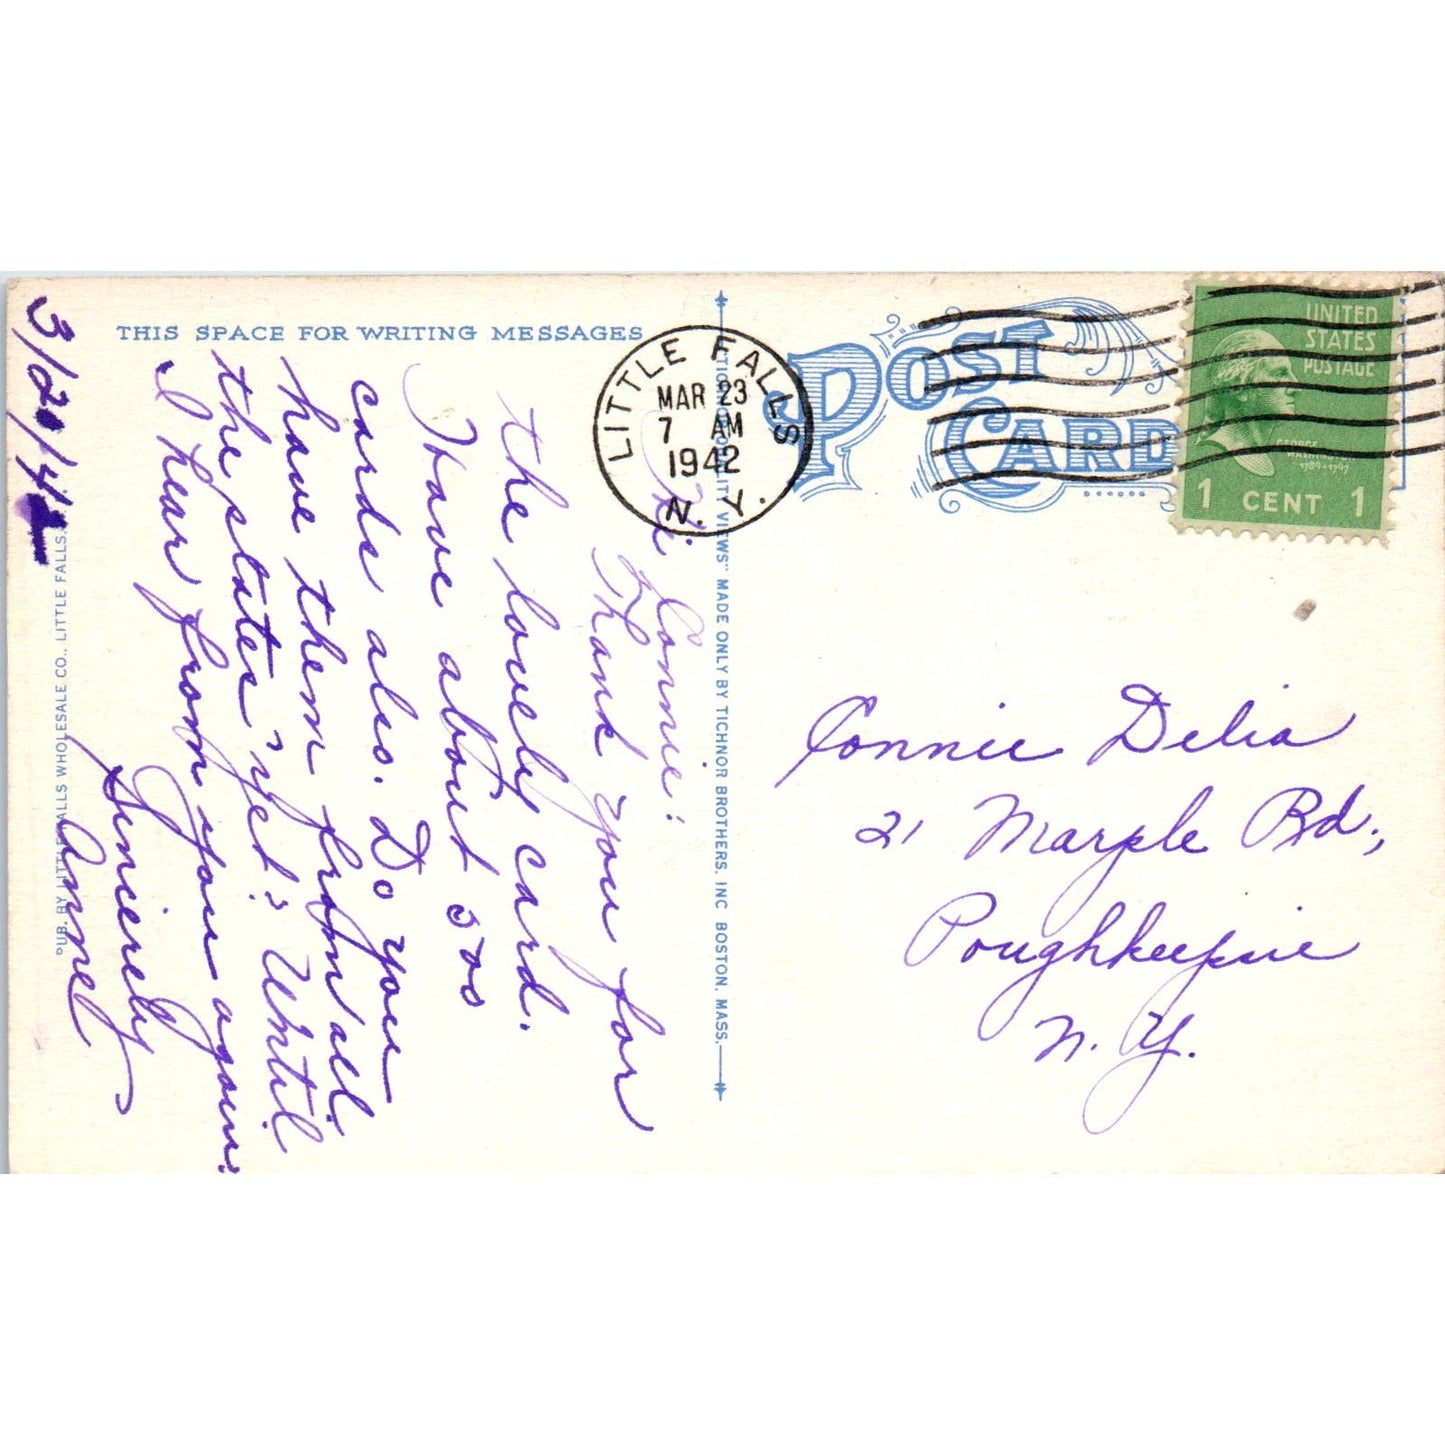 THIS SPACE FOR WRITING MESSAGES
3/20/42
Hi Connie:
Thank you for
the lovely card.
I have about 500
cards also. Do you
have them from all
the states yet? Until
I hear from you again.
Sincerely
PUB. BY LITTLE FALLS WHOLESALE CO., LITTLE FALLS,
VIEWS" MADE ONLY BY TICHNOR BROTHERS, INC BOSTON, MASS.
LITTLE FALLS
MAR 23
7 AM
1942
N. Y.
POST CARD
UNITED
STATES
POSTAGE
GEORGE
1789-1797
1 CENT 1
Connie Delia
21 Marple Rd.,
Poughkeepsie
N. Y.